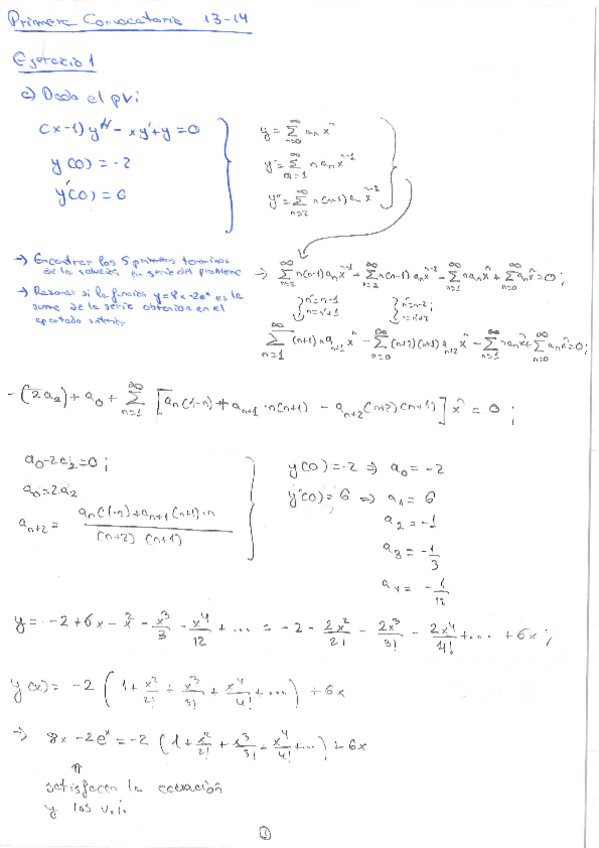 Primera Convocatoria 13-14
Ejercicio 1
a) Dado el pvi
(x-1)y'' - xy' + y = 0
y(0) = -2
y'(0) = 6
y = ∑_{n=0}^{∞} a_n x^n
y' = ∑_{n=1}^{∞} n a_n x^{n-1}
y'' = ∑_{n=2}^{∞} n(n-1) a_n x^{n-2}
→ Encontrar los 5 primeros terminos
de la solución en serie del problema
→ Razonar si la función y=8x-2e^x es la
suma de la serie obtenida en el
apartado anterior
→ ∑_{n=2}^{∞} n(n-1) a_n x^{n-1} - ∑_{n=2}^{∞} n(n-1) a_n x^{n-2} - ∑_{n=1}^{∞} n a_n x^n + ∑_{n=0}^{∞} a_n x^n = 0;
{ n'=n-1 { n'=n-2;
n=n'+1 n=n'+2
∑_{n=1}^{∞} (n+1) n a_{n+1} x^n - ∑_{n=0}^{∞} (n+2)(n+1) a_{n+2} x^n - ∑_{n=1}^{∞} n a_n x^n + ∑_{n=0}^{∞} a_n x^n = 0;
-(2a_2) + a_0 + ∑_{n=1}^{∞} [a_n(1-n) + a_{n+1} · n(n+1) - a_{n+2}(n+2)(n+1)] x^n = 0;
a_0 - 2a_2 = 0;
a_0 = 2a_2
a_{n+2} = (a_n(1-n) + a_{n+1}(n+1)·n) / ((n+2)(n+1))
y(0) = -2 ⇒ a_0 = -2
y'(0) = 6 ⇒ a_1 = 6
a_2 = -1
a_3 = -1/3
a_4 = -1/12
y = -2 + 6x - x^2 - x^3/3 - x^4/12 + ... = -2 - 2x^2/2! - 2x^3/3! - 2x^4/4! + ... + 6x;
y(x) = -2 (1 + x^2/2! + x^3/3! + x^4/4! + ...) + 6x
→ 8x - 2e^x = -2 (1 + x^2/2! + x^3/3! + x^4/4! + ...) + 6x
⇑
satisfacen la ecuación
y los v.i.
1